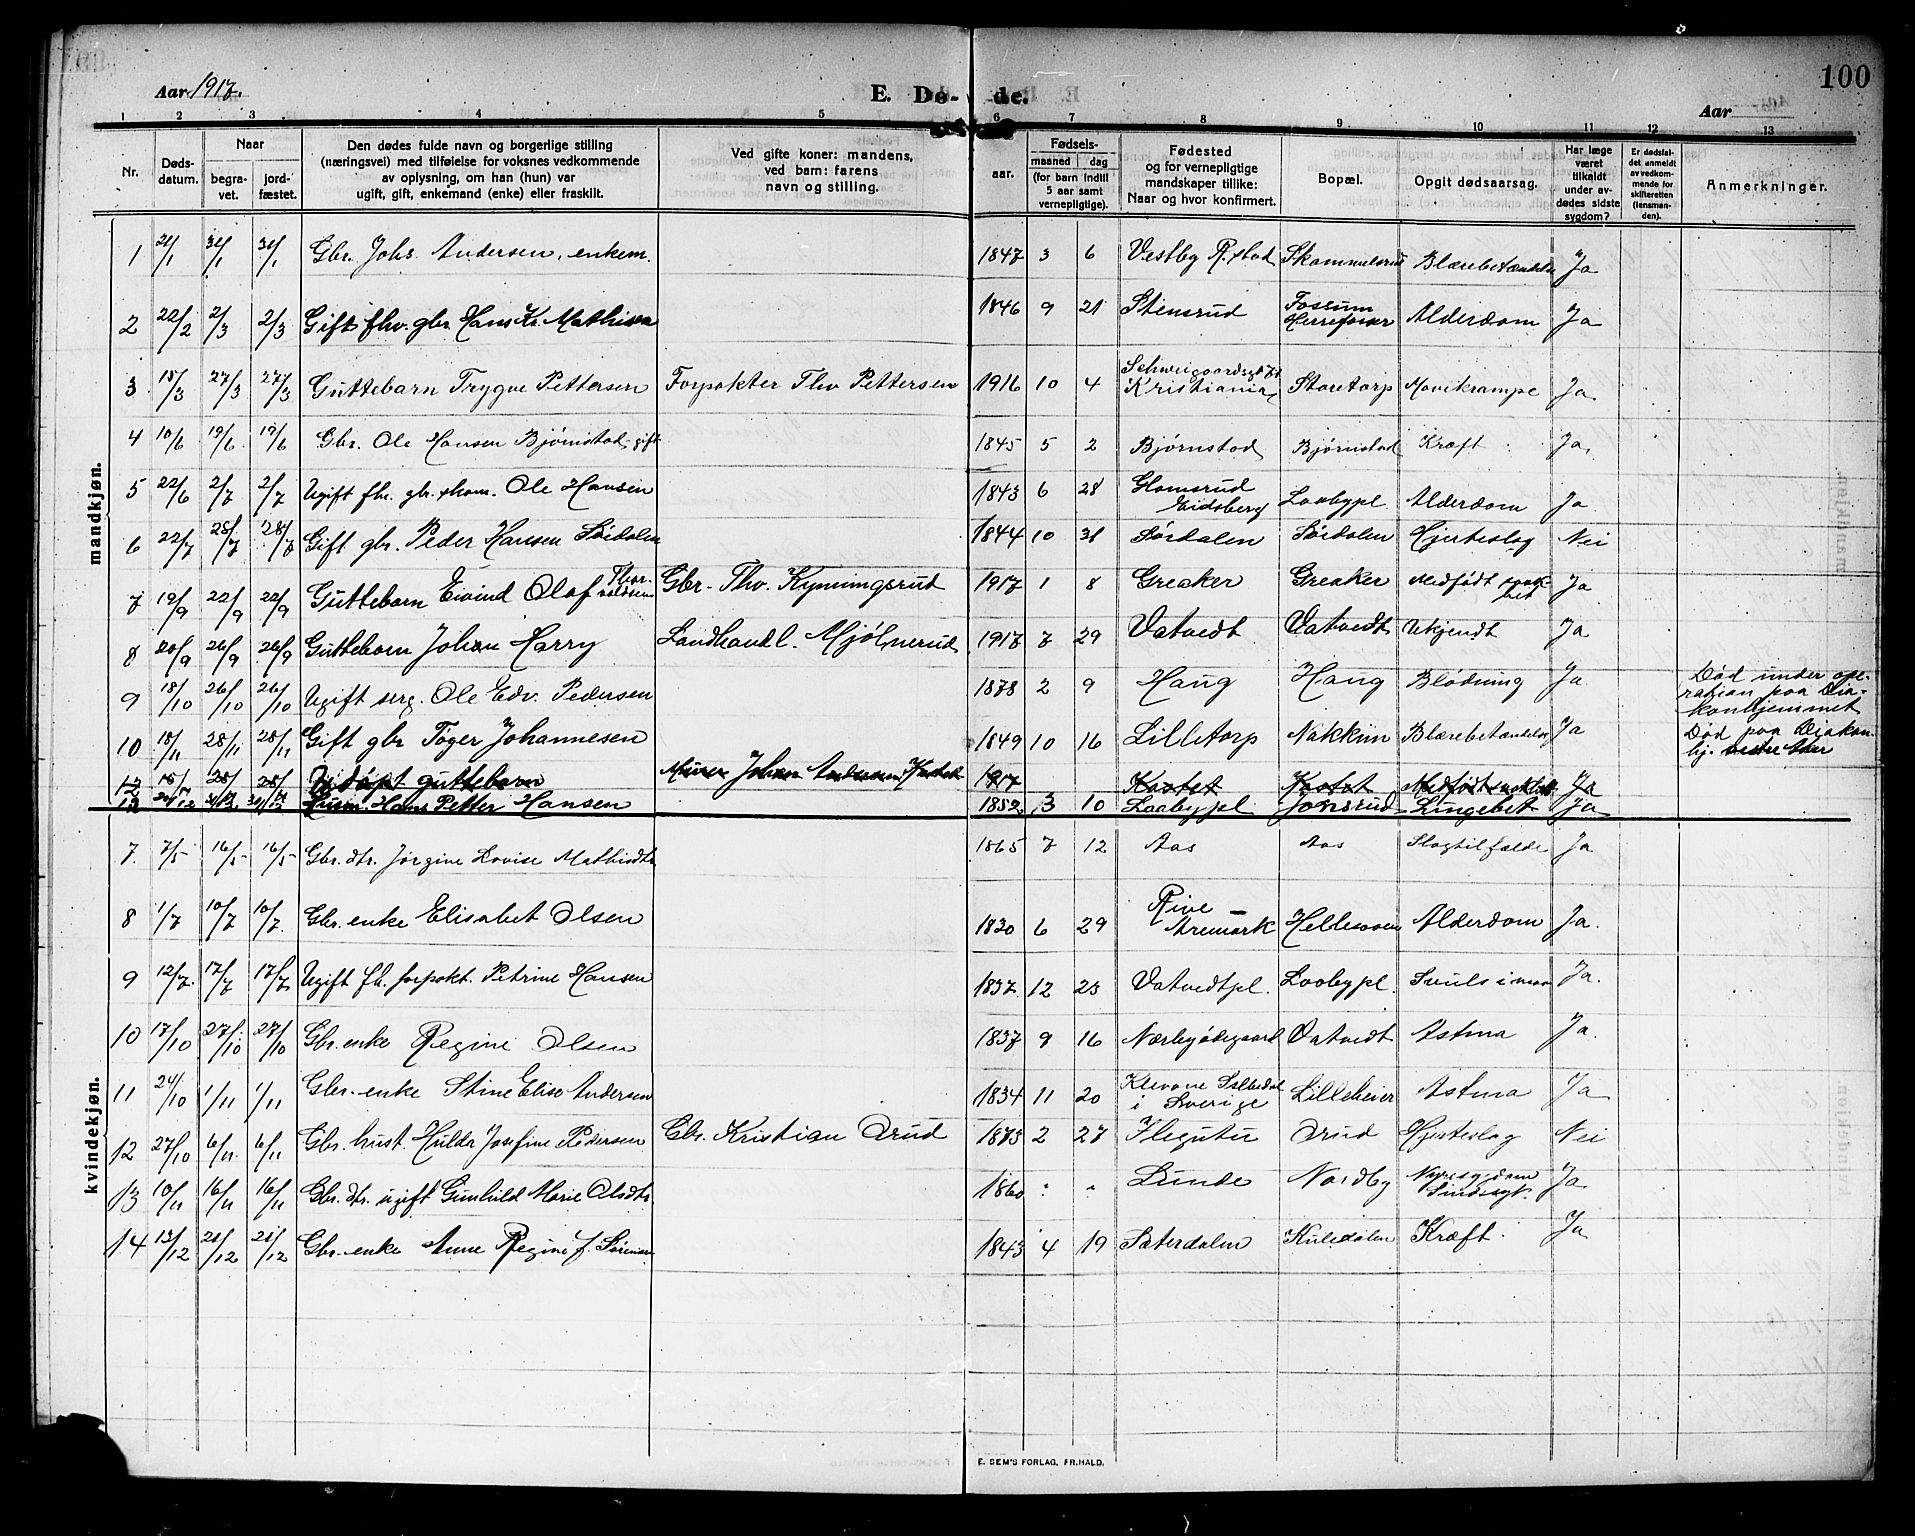 100
Aar 1917.
E. Dø- de.
Aar
1 2 3 4 5 6 7 8 9 10 11 12 13
Nr. Døds-datum. Naar begra-vet. jord-fæstet. Den dødes fulde navn og borgerlige stilling (næringsvei) med tilføielse for voksnes vedkommende av oplysning, om han (hun) var ugift, gift, enkemand (enke) eller fraskilt. Ved gifte koner: mandens, ved barn: farens navn og stilling. Fødsels- aar. maaned dag (for barn indtil 5 aar samt vernepligtige). Fødested og for vernepligtige mandskaper tillike: Naar og hvor konfirmert. Bopæl. Opgit dødsaarsag. Har læge været tilkaldt under av-dødes sidste sygdom? Er dødsfal-det anmeldt av vedkom-mende for skifteretten (lensman-den). Anmerkninger.
mandkjøn.
1 21/1 31/1 31/1 Gbr. Johs. Andersen, enkem. 1847 3 6 Vestby R.stad Skammelsrud Blærebetændelse Ja
2 22/2 2/3 2/3 Gift fhv. gbr. Hans Kr. Mathisen 1846 9 21 Stensrud Fossum Herrefosser Alderdom Ja
3 18/3 27/3 27/3 Guttebarn Trygve Pettersen Forpakter Thv Pettersen 1916 10 4 Kristiania Storetorp Mavekrampe Ja
4 10/6 19/6 19/6 Gbr. Ole Hansen Bjørnstad, gift 1845 5 2 Bjørnstad Bjørnstad Kræft Ja.
5 22/6 2/7 2/7 Ugift fhv. gbr. Ole Hansen 1843 6 28 Glomsrud Eidsberg Loobypl Alderdom Ja
6 22/7 28/7 28/7 Gift gbr. Peder Hansen Sørdalen 1844 10 31 Sørdalen Sørdalen Hjerteslag Nei
7 19/9 22/9 22/9 Guttebarn Eivind Olaf Thor-valdsen Gbr. Thv. Kynningsrud 1917 1 8 Greaker Greaker Medfødt svak-het Ja
8 20/9 26/9 26/9 Guttebarn Johan Harry Landhandl. Mjølnerud 1917 7 29 Vatvedt Vatvedt Ukjendt Ja
9 18/10 26/10 26/10 Ugift serg. Ole Edv. Pedersen 1878 2 9 Haug Haug Blødning Ja Død under ope-ration paa Dia-konhjemmet
10 18/11 28/11 28/11 Gift gbr Tøger Johannesen 1849 10 16 Lilletorp Nakkim Blærebetændelse Ja Død paa Diakon-hj.
12 18/12 28/12 28/12 Udøpt guttebarn Murer Johan Andersen, Kastet 1917 Kastet Kastet Medfødt svakhet Ja
13 Hans Petter Hansen 1852 3 10 Loobypl Jonsrud Lungebet. Ja
kvindekjøn.
7. 7/5 16/5 16/5 Gbr. dtr. Jørgine Lovise Mathisdtr 1865 7 12 Aas Aas Slagtilfælde Ja
8 1/7 10/7 10/7. Gbr. enke Elisabet Olsen 1830 6 29 Rive Aremark Hellesaaen Alderdom Ja.
9 12/7. 17/7 17/7 Ugift fh. forpakt. Petrine Hansen 1837. 12 23 Vatvedtpl. Loobypl. Svuls i mav Ja.
10 17/10 27/10 27/10 Gbr. enke Regine Olsen 1837 9 16 Nærbyødegaard Vatvedt Astma Ja.
11 24/10 1/11 1/11 Gbr. enke Stine Elise Andersen 1834 11 20 Klevane i Sverige Lilleheier Astma Ja
12 27/10 6/11 6/11 Gbr. hust. Hulda Josefine Pedersen Gbr. Kristian Orud 1873 2 27 Flegutu Orud Hjerteslag Nei
13 10/11 16/11 16/11 Gbr. dtr. ugift Gunhild Marie Olsdtr 1860 " " Lunde Nordby Nyresygdom Sindssyk. Ja
14 13/12 21/12 21/12 Gbr. enke Anne Regine f. Sørensen 1843 4 19 Sæterdalen Kuledalen Kræft. Ja
E. SEM'S FORLAG, FR.HALD.